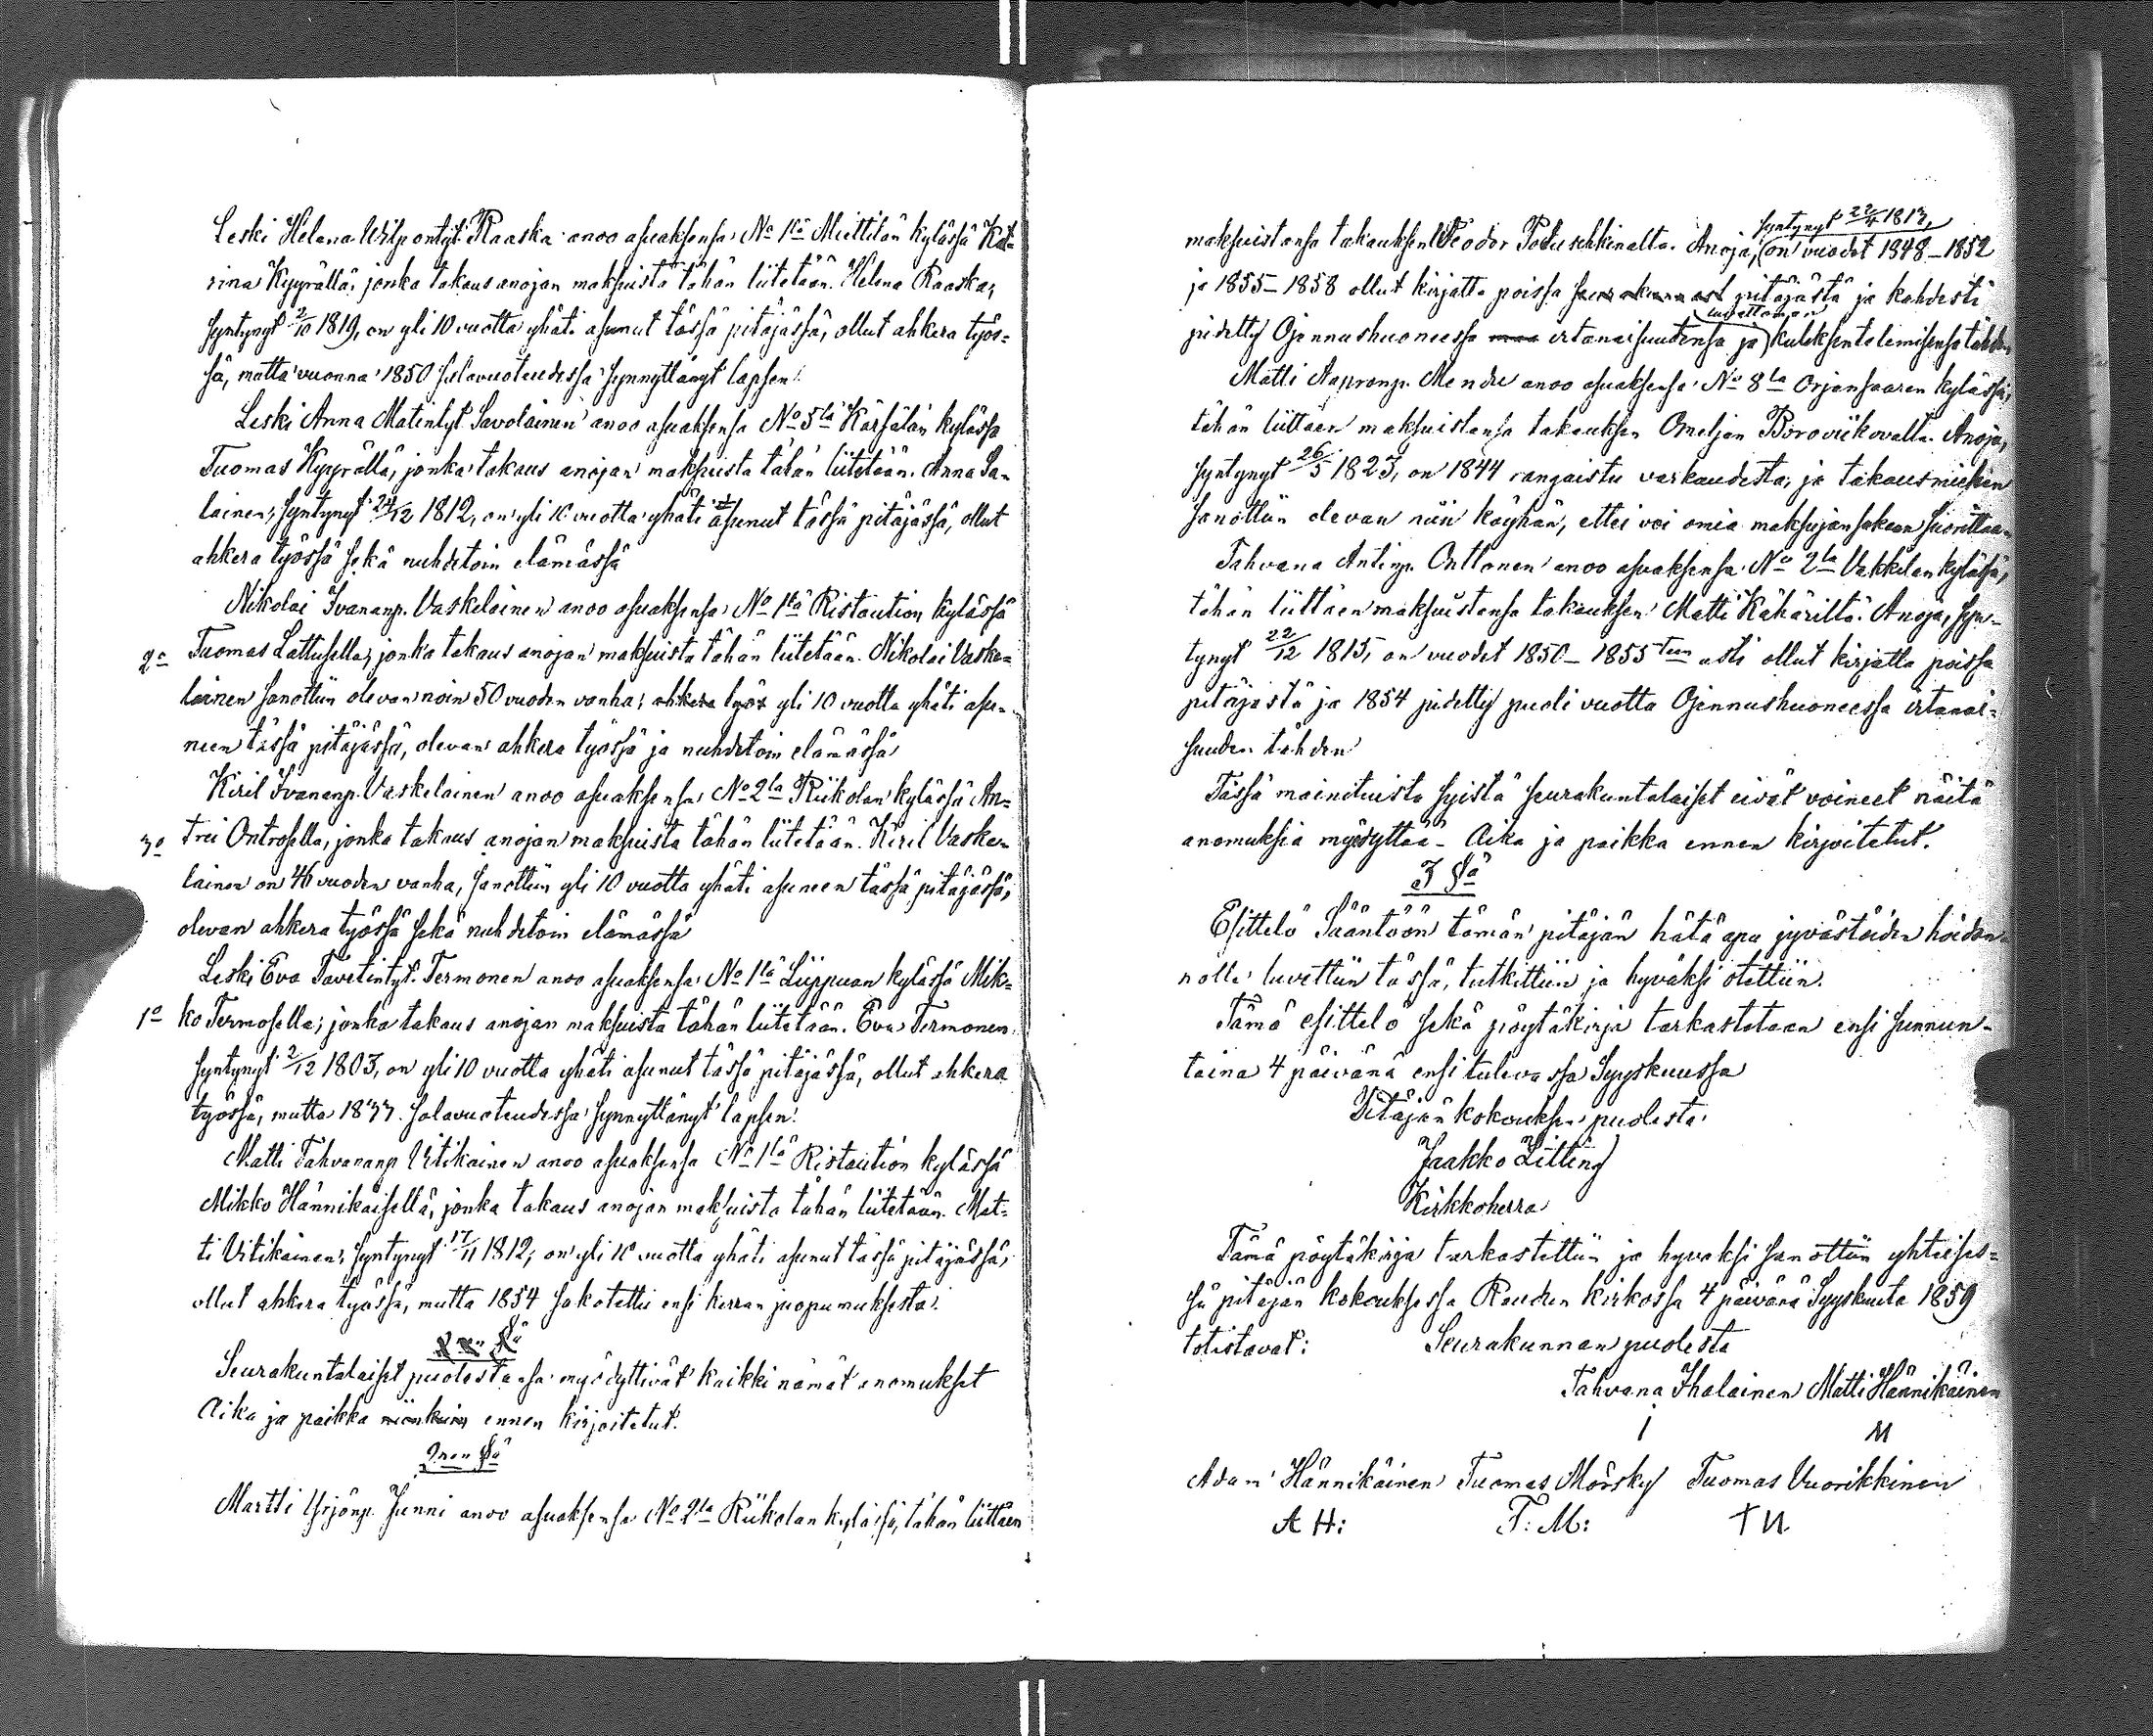 Leski Helena Wilpontyt. Raaska anoo asuaksensa No 1llä Miettilän kylässä Kat-
rina Kyyrällä, jonka takaus anojan maksuista tähän liitetään. Helena Raaska,
syntynyt 2/10 1819, on yli 10 vuotta yhäti asunut tässä pitäjässä, ollut ahkera työs-
sä, mutta vuonna 1850 salavuoteudessa synnyttänyt lapsen.
Leski Anna Matintyt. Savolainen anoo asuaksensa No 5llä Kärsälän kylässä
Tuomas Kyyrällä, jonka takaus anojan maksuista tähän liitetään. Anna Sa-
lainen, syntynyt 24/12 1812, on yli 10 vuotta yhäti asunut tässä pitäjässä, ollut
ahkera työssä sekä nuhdetoin elämässä
Nikolai Ivananp. Vaskelainen anoo asuaksensa No 1llä Ristaution kylässä
2o Tuomas Lattusella, jonka takaus anojan maksuista tähän liitetään. Nikolai Vaske-
lainen sanottiin olevan noin 50 vuoden vanha; ahkera työs yli 10 vuotta yhäti asu-
neen tässä pitäjässä, olevan ahkera työssä ja nuhdetoin elämässä
Kiril Ivananp. Vaskelainen anoo asuaksensa No 2lla Riikolan kylässä An-
3o trei Ontrosella, jonka takaus anojan maksuista tähän liitetään. Kiril Vaske-
lainen on 46 vuoden vanha, sanottiin yli 10 vuotta yhäti asuneen tässä pitäjässä,
olevan ahkera työssä sekä nuhdetoin elämässä
Leski Eva Tavetintyt. Termonen anoo asuaksensa No 1llä Liippuan kylässä Mik-
1o ko Termosella; jonka takaus anojan maksuista tähän liitetään. Eva Termonen
syntynyt 2/12 1803, on yli 10 vuotta yhäti asunut tässä pitäjässä, ollut ahkera
työssä, mutta 1833 salavuoteudessa synnyttänyt lapsen.
Matti Tahvananp. Vitikainen anoo asuaksensa No 1llä Ristaution kylässä
Mikko Hännikäisellä, jonka takaus anojan maksuista tähän liitetään. Mat-
ti Vitikainen, syntynyt 17/11 1812, on yli 10 vuotta yhäti asunut tässä pitäjässä,
ollut ahkera työssä, mutta 1854 sakotettu ensi kerran juopumuksesta.
Seurakuntalaiset puolestansa myödyttivät kaikki nämät anomukset
Aika ja paikka niinkuin ennen kirjoitetut.
2nen §ä
Martti Yrjönp. Junni anoo asuaksensa No 2lla Riikolan kylässä, tähän liittäen
syntynyt 22/4 1813,
maksuistansa takauksen Feodor Patuschkinalta. Anoja, on vuodet 1848–1852
ja 1855–1858 ollut kirjatta poissa seurakunnast pitäjästä ja kahdesti
luvattoman
pidetty Ojennushuoneessa irtanaisuutensa ja kuleksentelemisensa tähden
Matti Aapronp. Mendu anoo asuaksensa No 8lla Orjansaaren kylässä,
tähän liittäen maksuistansa takauksen Omeljan Borovikovalta. Anoja,
syntynyt 26/5 1823, on 1844 rangaistu varkaudesta, ja takausmiehen
sanottiin olevan niin köyhän, ettei voi omia maksujansakaan suorittaa.
Tahvana Antinp. Onttonen anoo asuaksensa No 2lla Vakkilan kylässä,
tähän liittäen maksuistansa takauksen Matti Kähäriltä. Anoja, syn-
tynyt 22/12 1815, on vuodet 1850–1855teen asti ollut kirjatta poissa
pitäjästä ja 1854 pidetty puoli vuotta Ojennushuoneessa irtanai-
suuden tähden
Tässä mainituista syistä seurakuntalaiset eivät voineet näitä
anomuksia myödyttää – Aika ja paikka ennen kirjoitetut.
3 §ä
Esittelö Sääntöön tämän pitäjän hätä apu jyvästöiden hoidon-
nolle luvettiin tässä, tutkittiin ja hyväksi otettiin.
Tämä esittelö sekä pöytäkirja tarkastetaan ensi sunnun-
taina 4 päivänä ensi tulevassa Syyskuussa
Pitäjän kokouksen puolesta:
Jaakko Zitting
Kirkkoherra
Tämä pöytäkirja tarkastettiin ja hyväksi sanottiin yhteises-
sä pitäjän kokouksessa Raudun kirkossa 4 päivänä Syyskuuta 1859
totistavat: Seurakunnan puolesta
Tahvana Ihalainen Matti Hännikäinen
I M
Adam Hännikäinen Tuomas Mörsky Tuomas Vuorikkinen
A H: T: M: T U